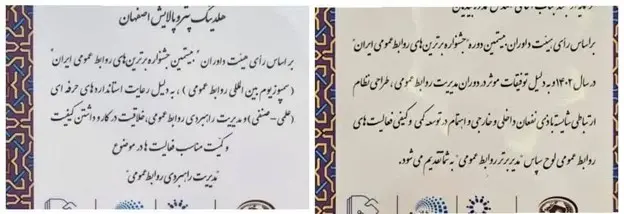 هلدینگ پتروپالایش اصفهان
بر اساس رأی هیئت داوران "بیستمین جشنواره برترین‌های روابط عمومی ایران"
(سمپوزیوم بین المللی روابط عمومی)، به دلیل رعایت استانداردهای حرفه ای
(علمی-صنفی) و مدیریت راهبردی روابط عمومی، خلاقیت در کار و داشتن کیفیت
و کمیت مناسب فعالیت ها در موضوع
"مدیریت راهبردی روابط عمومی"
بر اساس رأی هیئت داوران بیستمین دوره "جشنواره برترین‌های روابط عمومی ایران"
در سال ۱۴۰۲ و به دلیل توفیقات موثر در دوران مدیریت روابط عمومی، طراحی نظام
ارتباطی شایسته با ذی نفعان داخلی و خارجی و اهتمام در توسعه کمی و کیفی فعالیت های
روابط عمومی لوح سپاس "مدیر برتر روابط عمومی" به شما تقدیم می شود.